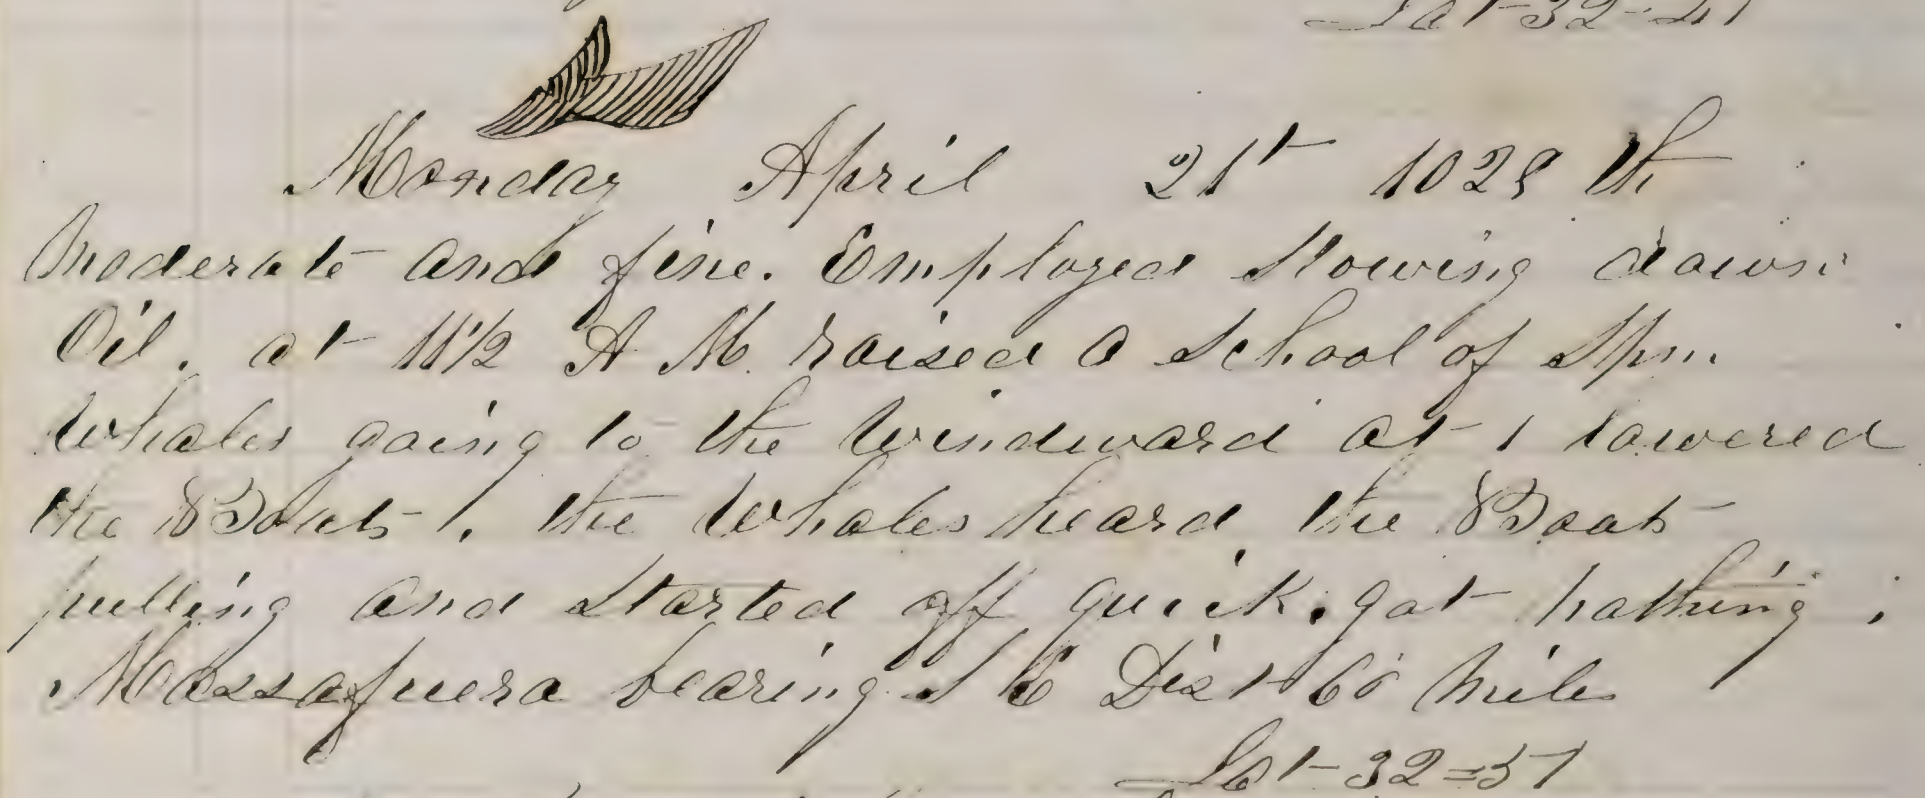 Lat-32-41
Monday April 21st 1029 th
Moderate and fine. Employed Stowing down
Oil. at 11½ A M. raised a School of Spm.
Whales going to the Windward at 1 lowered
the Boats. the Whales heard the Boats
pulling and Started off quick. got nothing.
Massafuera bearing S E Dist 60 Miles
Lat-32=57